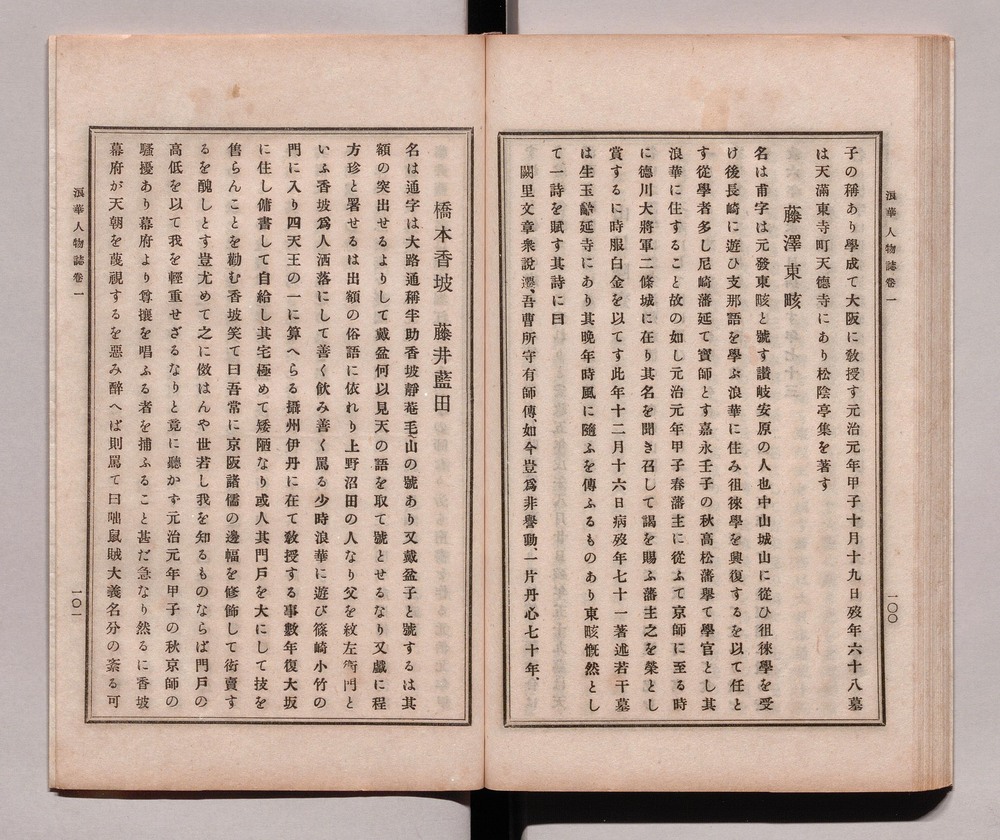 浪華人物誌卷一
一〇〇
子の稱あり學成て大阪に敎授す元治元年甲子十月十九日歿年六十八墓
は天滿東寺町天德寺にあり松陰亭集を著す
藤澤東畡
名は甫字は元發東畡と號す讃岐安原の人也中山城山に從ひ徂徠學を受
け後長崎に遊ひ支那語を學ぶ浪華に住み徂徠學を興復するを以て任と
す從學者多し尼崎藩延て賓師とす嘉永壬子の秋高松藩擧て學官とし其
浪華に住すること故の如し元治元年甲子春藩主に從ふて京師に至る時
に德川大將軍二條城に在り其名を聞き召して謁を賜ふ藩主之を榮とし
賞するに時服白金を以てす此年十二月十六日病歿年七十一著述若干墓
は生玉齡延寺にあり其晚年時風に隨ふを傳ふるものあり東畡慨然とし
て一詩を賦す其詩に曰
闕里文章衆說遷、吾曹所守有師傳、如今豈爲非譽動、一片丹心七十年、
橋本香坡　藤井藍田
名は通字は大路通稱半助香坡靜菴毛山の號あり又戴盆子と號するは其
額の突出せるよりして戴盆何以見天の語を取て號とせるなり又戲に程
方珍と署せるは出額の俗語に依れり上野沼田の人なり父を紋左衛門と
いふ香坡爲人洒落にして善く飮み善く罵る少時浪華に遊び篠崎小竹の
門に入り四天王の一に算へらる攝州伊丹に在て敎授する事數年復大坂
に住し傭書して自給し其宅極めて矮陋なり或人其門戸を大にして技を
售らんことを勸む香坡笑て曰吾常に京阪諸儒の邊幅を修飾して衒賣す
るを醜しとす豈尤めて之に傚はんや世若し我を知るものならば門戸の
高低を以て我を輕重せざるなりと竟に聽かす元治元年甲子の秋京師の
騷擾あり幕府より尊攘を唱ふる者を捕ふること甚だ急なり然るに香坡
幕府が天朝を蔑視するを惡み醉へば則罵て曰咄鼠賊大義名分の紊る可
浪華人物誌卷一
一〇一